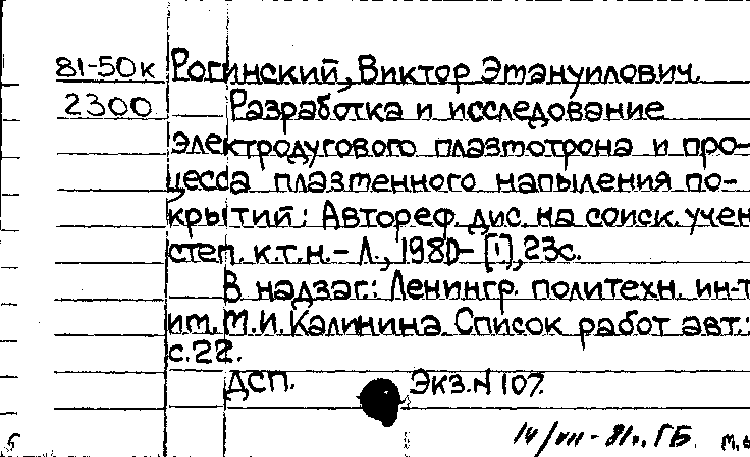 81-50к Рогинский, Виктор Этануилович.
2300 Разработка и исследование
электродугового плазтотрона и про-
цесса плазтенного напыления по-
крытий: Автореф. дис. на соиск. учен
степ. к.т.н.- Л., 1980- [1], 23с.
В надзаг.: Ленингр. политехн. ин-т
им. М.И. Калинина. Список работ авт.:
с.22.
ДСП. Экз.N 107.
14/VII-81г. ГБ.